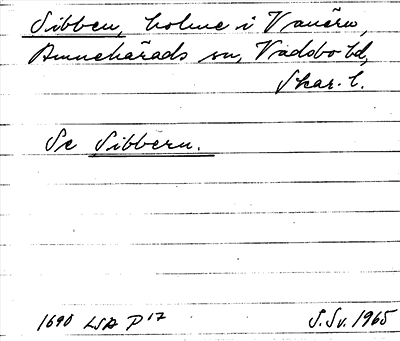 Sibben, holme i Vänern,
Amnehärads sn, Vadsbo hd,
Skar. l.
Se Sibbern.
1690 LSA P 17
S.Sv. 1965